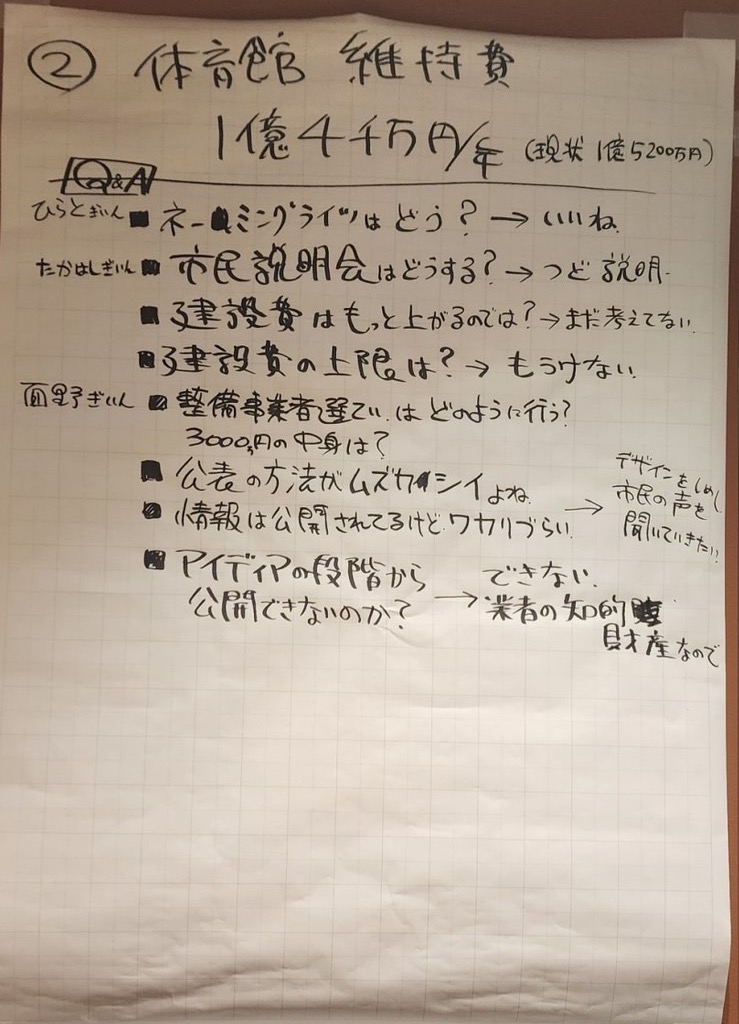 ② 体育館 維持費
1億4千万円/年 (現状 1億5200万円)
Q&A
ひらとぎいん ■ ネーミングライツはどう? → いいね
たかはしぎいん ■ 市民説明会はどうする? → つど説明
■ 建設費はもっと上がるのでは? → まだ考えてない
■ 建設費の上限は? → もうけない
面野ぎいん ■ 整備事業者選てい はどのように行う?
3000円の中身は?
■ 公表の方法がムズカシイよね
■ 情報は公開されてるけど ワカリづらい
→ デザインをしめし
市民の声を
聞いていきたい
■ アイディアの段階から
公開できないのか?
→ できない
業者の知的
財産なので